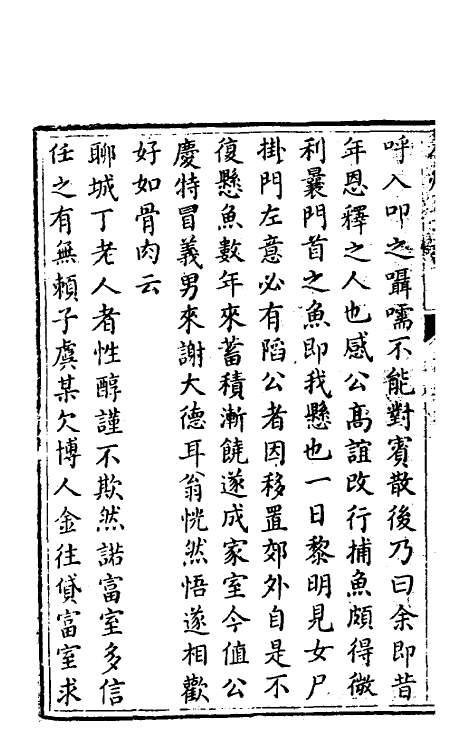 呼入叩之囁嚅不能對賓散後乃曰余即昔
年恩釋之人也感公高誼改行捕魚頗得微
利曩門首之魚即我懸也一日黎明見女尸
掛門左意必有陷公者因移置郊外自是不
復懸魚數年來蓄積漸饒遂成家室今值公
慶特冒義男來謝大德耳翁恍然悟遂相歡
好如骨肉云
聊城丁老人者性醇謹不欺然諾富室多信
任之有無賴子虞某欠博人金往貸富室求